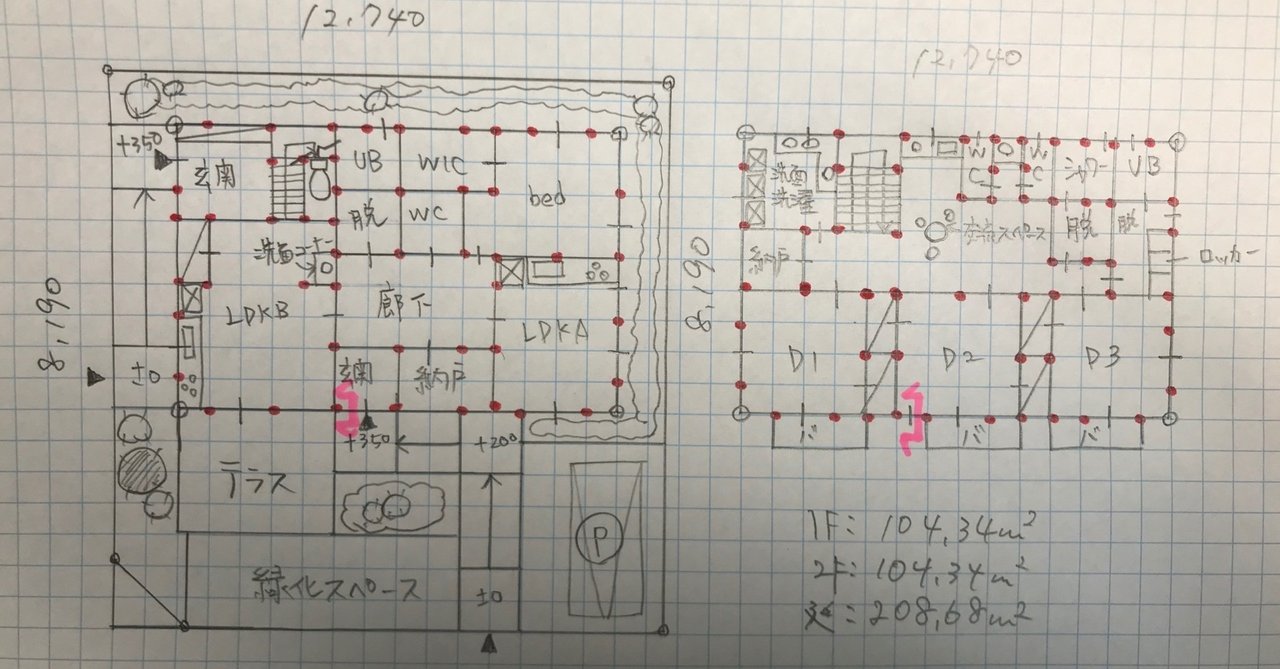 12,740
12,740
+350
玄関
UB
WIC
bed
脱
WC
洗面
LDKB
廊下
LDKA
8,190
±0
玄関
納戸
+350
+200
テラス
P
緑化スペース
±0
洗面
洗濯
WC
WC
シャワー
UB
交流スペース
脱
脱
ロッカー
納戸
8,190
D1
D2
D3
バ
バ
バ
1F: 104,34m²
2F: 104,34m²
延: 208,68m²